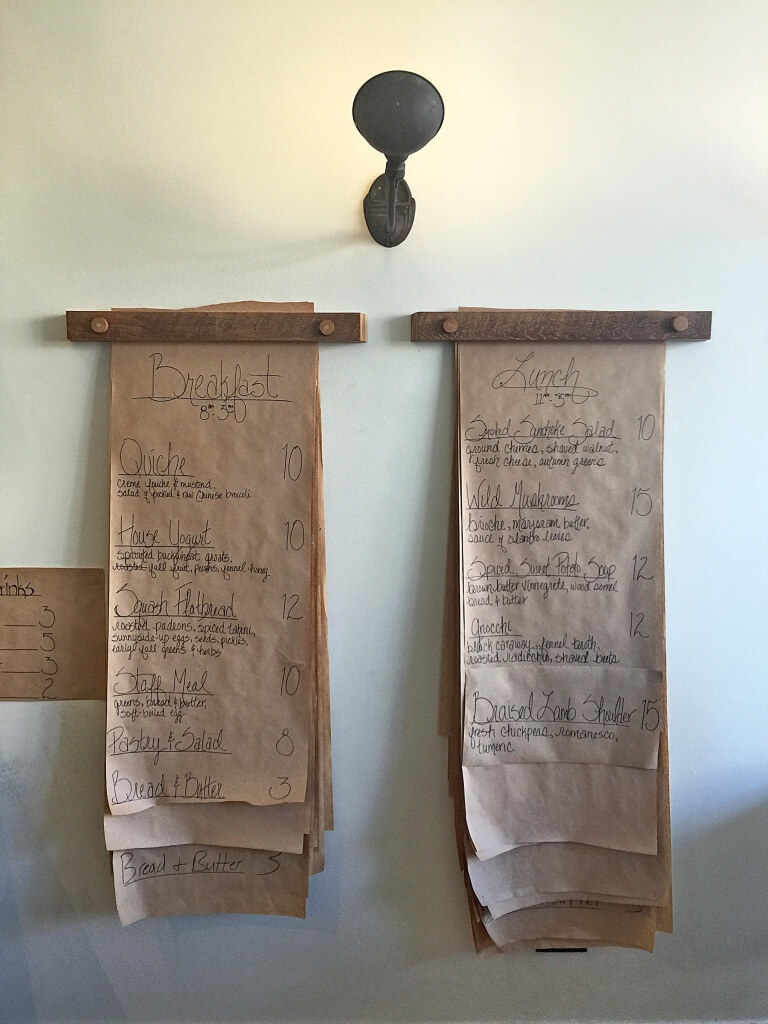 Breakfast
8am-3pm
Quiche 10
creme fraiche & mustard,
salad of pickled & raw Chinese broccoli
House Yogurt 10
sprouted buckwheat groats,
roasted fall fruit, pecans, fennel honey
Squash Flatbread 12
roasted padrons, spiced tahini,
sunnyside-up eggs, seeds, pickles,
early fall greens & herbs
Staff Meal 10
greens, bread & butter,
soft-boiled egg
Pastry & Salad 8
Bread & Butter 3
Bread + Butter 3
Lunch
11am-3pm
Smoked Sunchoke Salad 10
ground cherries, shaved walnut,
fresh cheese, autumn greens
Wild Mushrooms 15
brioche, marjoram butter,
sauce of cilantro leaves
Spiced Sweet Potato Soup 12
brown butter vinnegrete, wood sorrel
bread & butter
Gnocchi 12
black caraway, fennel broth,
roasted radicchio, shaved beets
Braised Lamb Shoulder 15
fresh chickpeas, romanesco,
tumeric
rinks
3
5
3
2